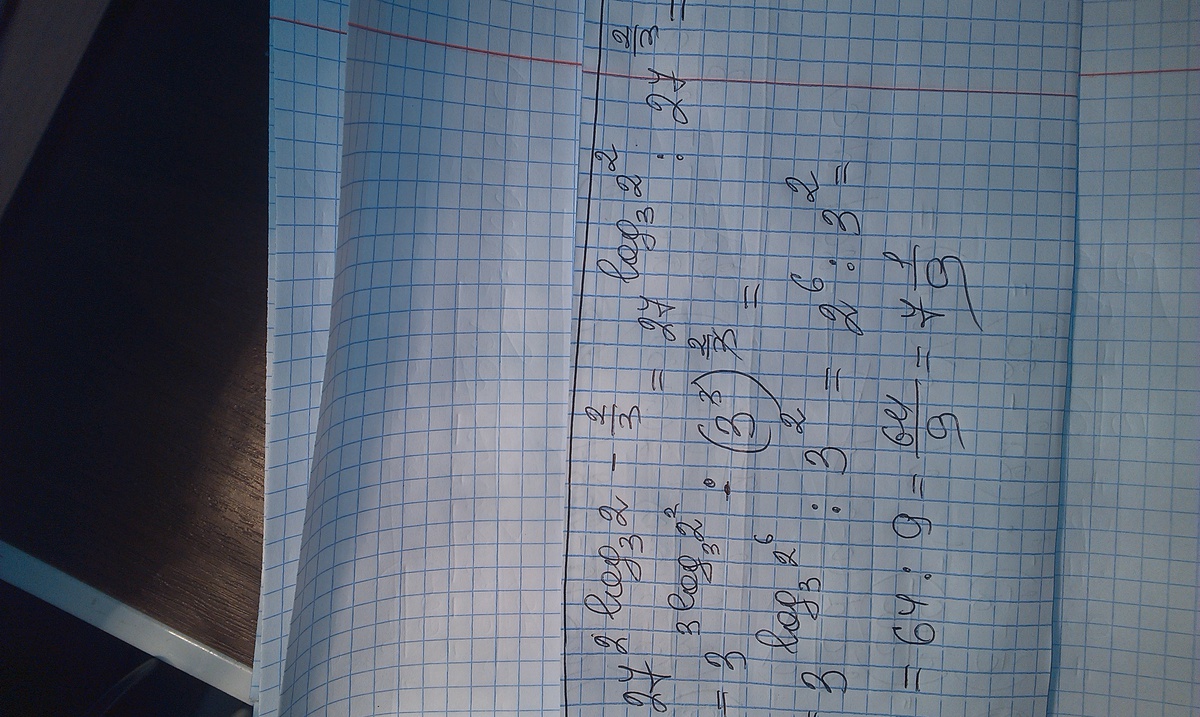 27^{2 log_3 2 - \frac{2}{3}} = 27^{log_3 2^2} : 27^{\frac{2}{3}} =
= 3^{3 log_3 2^2} : (3^3)^{\frac{2}{3}} =
= 3^{log_3 2^6} : 3^2 = 2^6 : 3^2 =
= 64 : 9 = \frac{64}{9} = 7 \frac{1}{9}